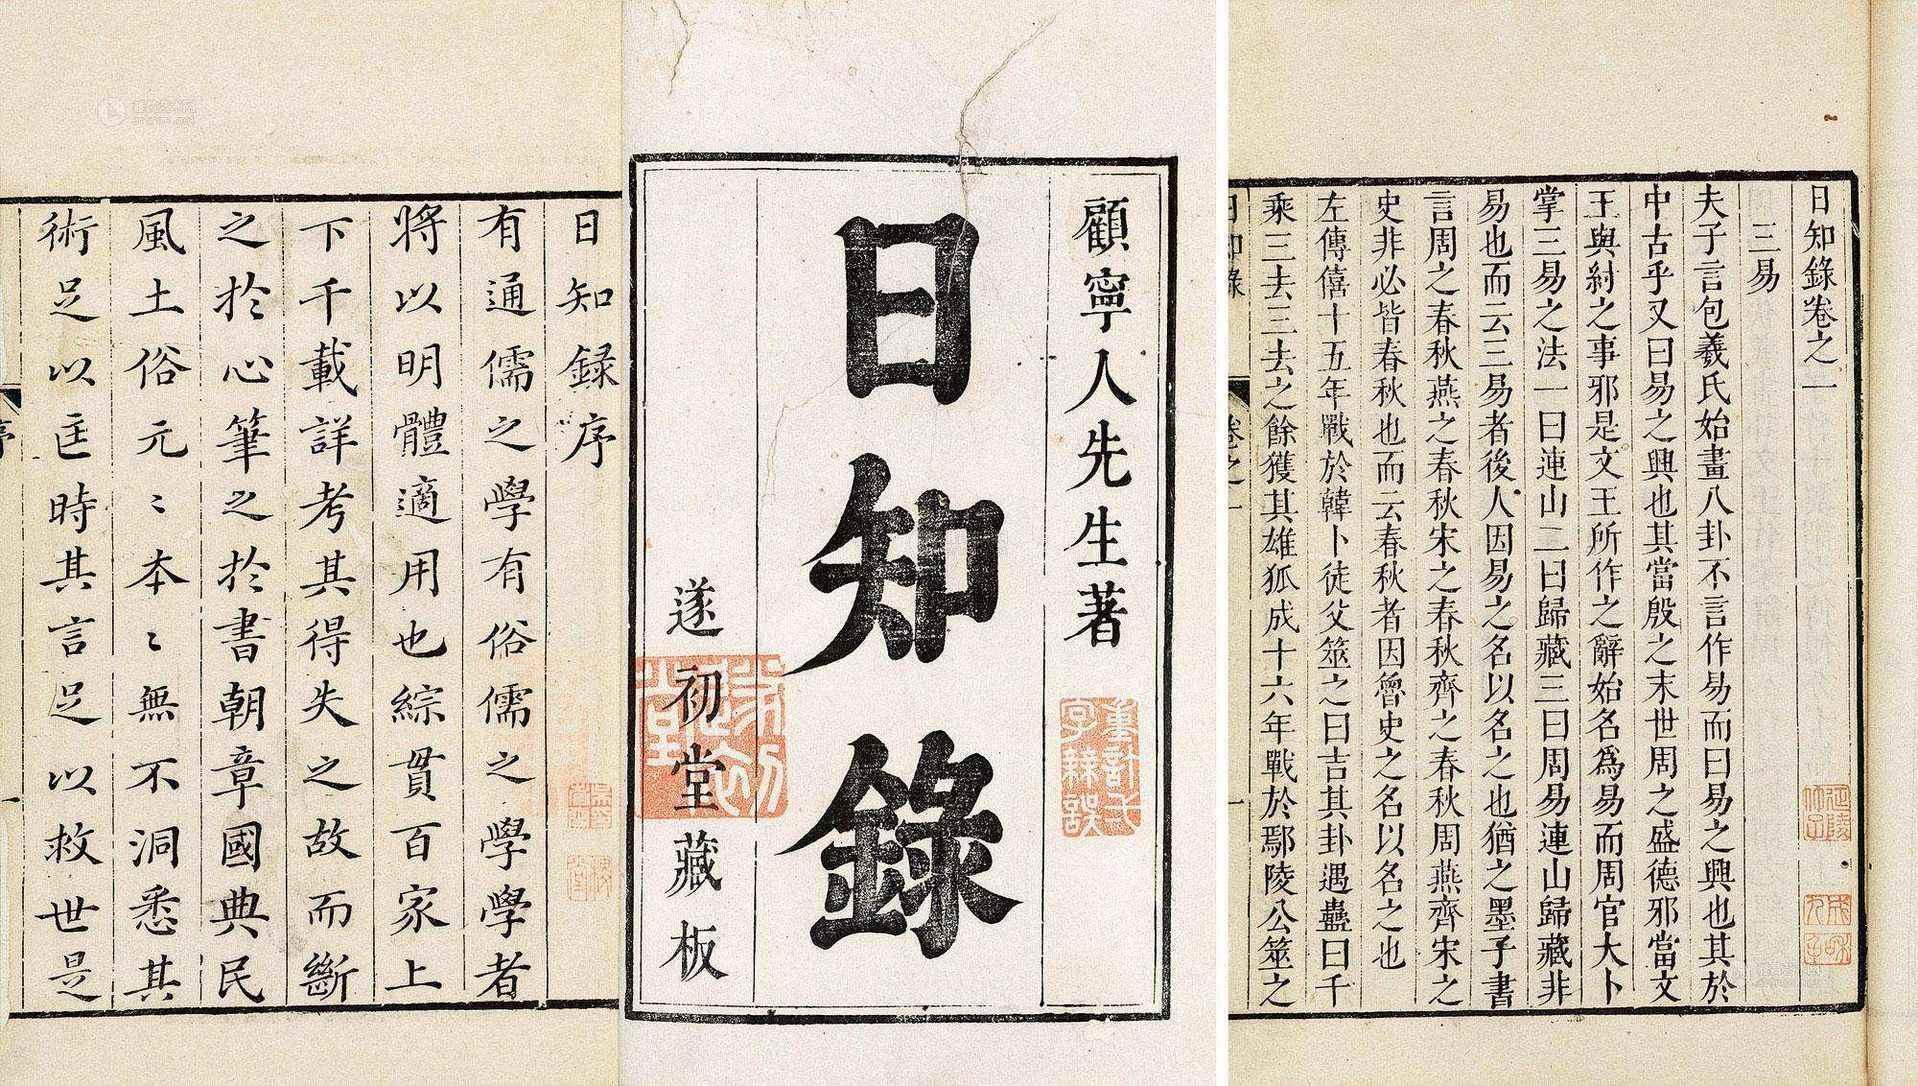 日知錄卷之一
三易
夫子言包羲氏始畫八卦不言作易而曰易之興也其於
中古乎又曰易之興也其當殷之末世周之盛德邪當文
王與紂之事邪是文王所作之辭始名爲易而周官大卜
掌三易之法一曰連山二曰歸藏三曰周易連山歸藏非
易也而云三易者後人因易之名以名之也猶之墨子書
言周之春秋燕之春秋宋之春秋齊之春秋周燕齊宋之
史非必皆春秋也而云春秋者因魯史之名以名之也
左傳僖十五年戰於韓卜徒父筮之曰吉其卦遇蠱曰千
乘三去三去之餘獲其雄狐成十六年戰於鄢陵公筮之
日知錄 卷之一 一
顧寧人先生著
日知錄
遂初堂藏板
日知録序
有通儒之學有俗儒之學學者
將以明體適用也綜貫百家上
下千載詳考其得失之故而斷
之於心筆之於書朝章國典民
風土俗元元本本無不洞悉其
術足以匡時其言足以救世是
序 一